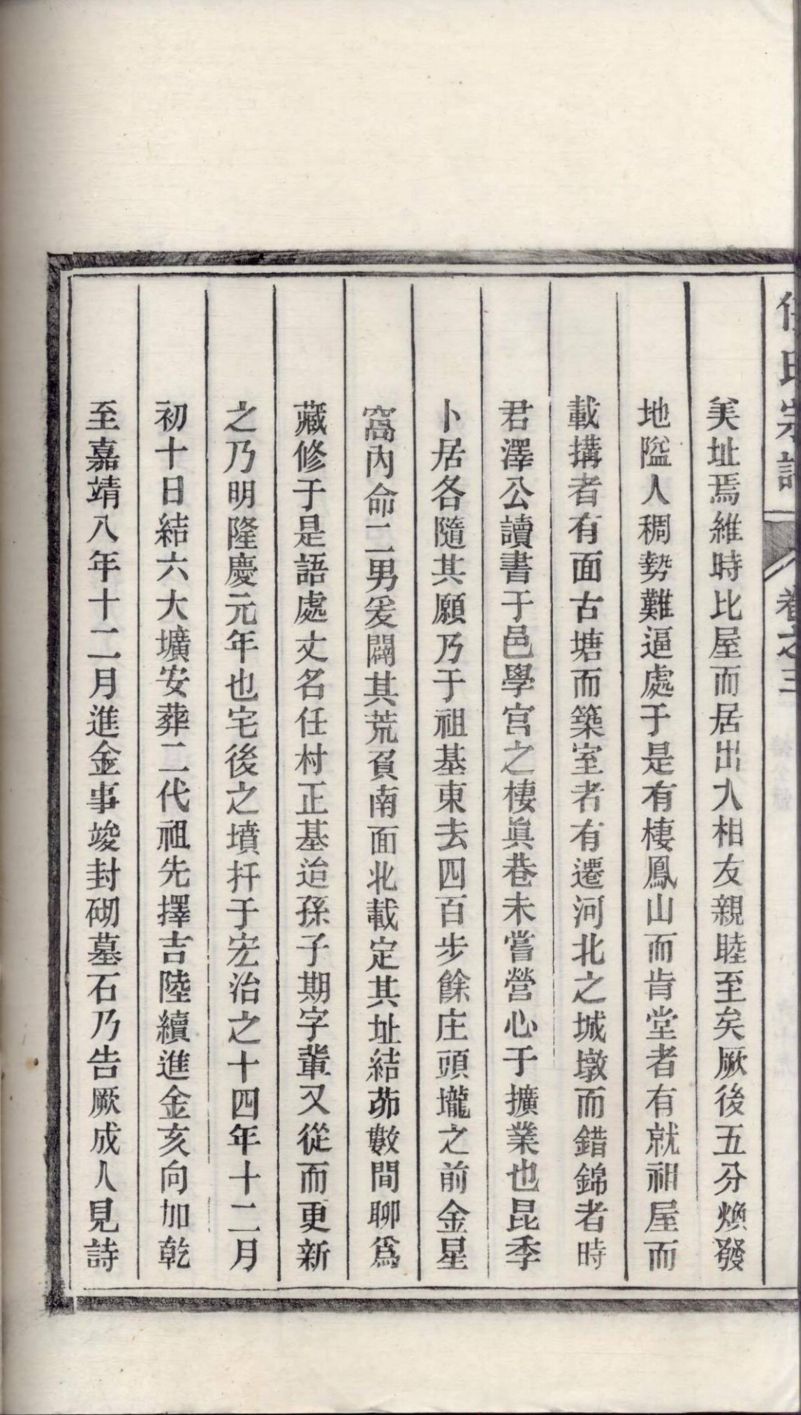 任氏宗譜 卷之三
美址焉維時比屋而居出入相友親睦至矣厥後五分煥發
地隘人稠勢難逼處于是有棲鳳山而肯堂者有就祖屋而
載搆者有面古塘而築室者有遷河北之城墩而錯錦者時
君澤公讀書于邑學宮之棲眞巷未嘗營心于擴業也昆季
卜居各隨其願乃于祖基東去四百步餘庄頭壠之前金星
窩內命二男爰闢其荒負南面北載定其址結茆數間聊爲
藏修于是語處丈名任村正基迨孫子期字輩又從而更新
之乃明隆慶元年也宅後之墳扦于宏治之十四年十二月
初十日結六大壙安葬二代祖先擇吉陸續進金亥向加乾
至嘉靖八年十二月進金事竣封砌墓石乃告厥成人見詩